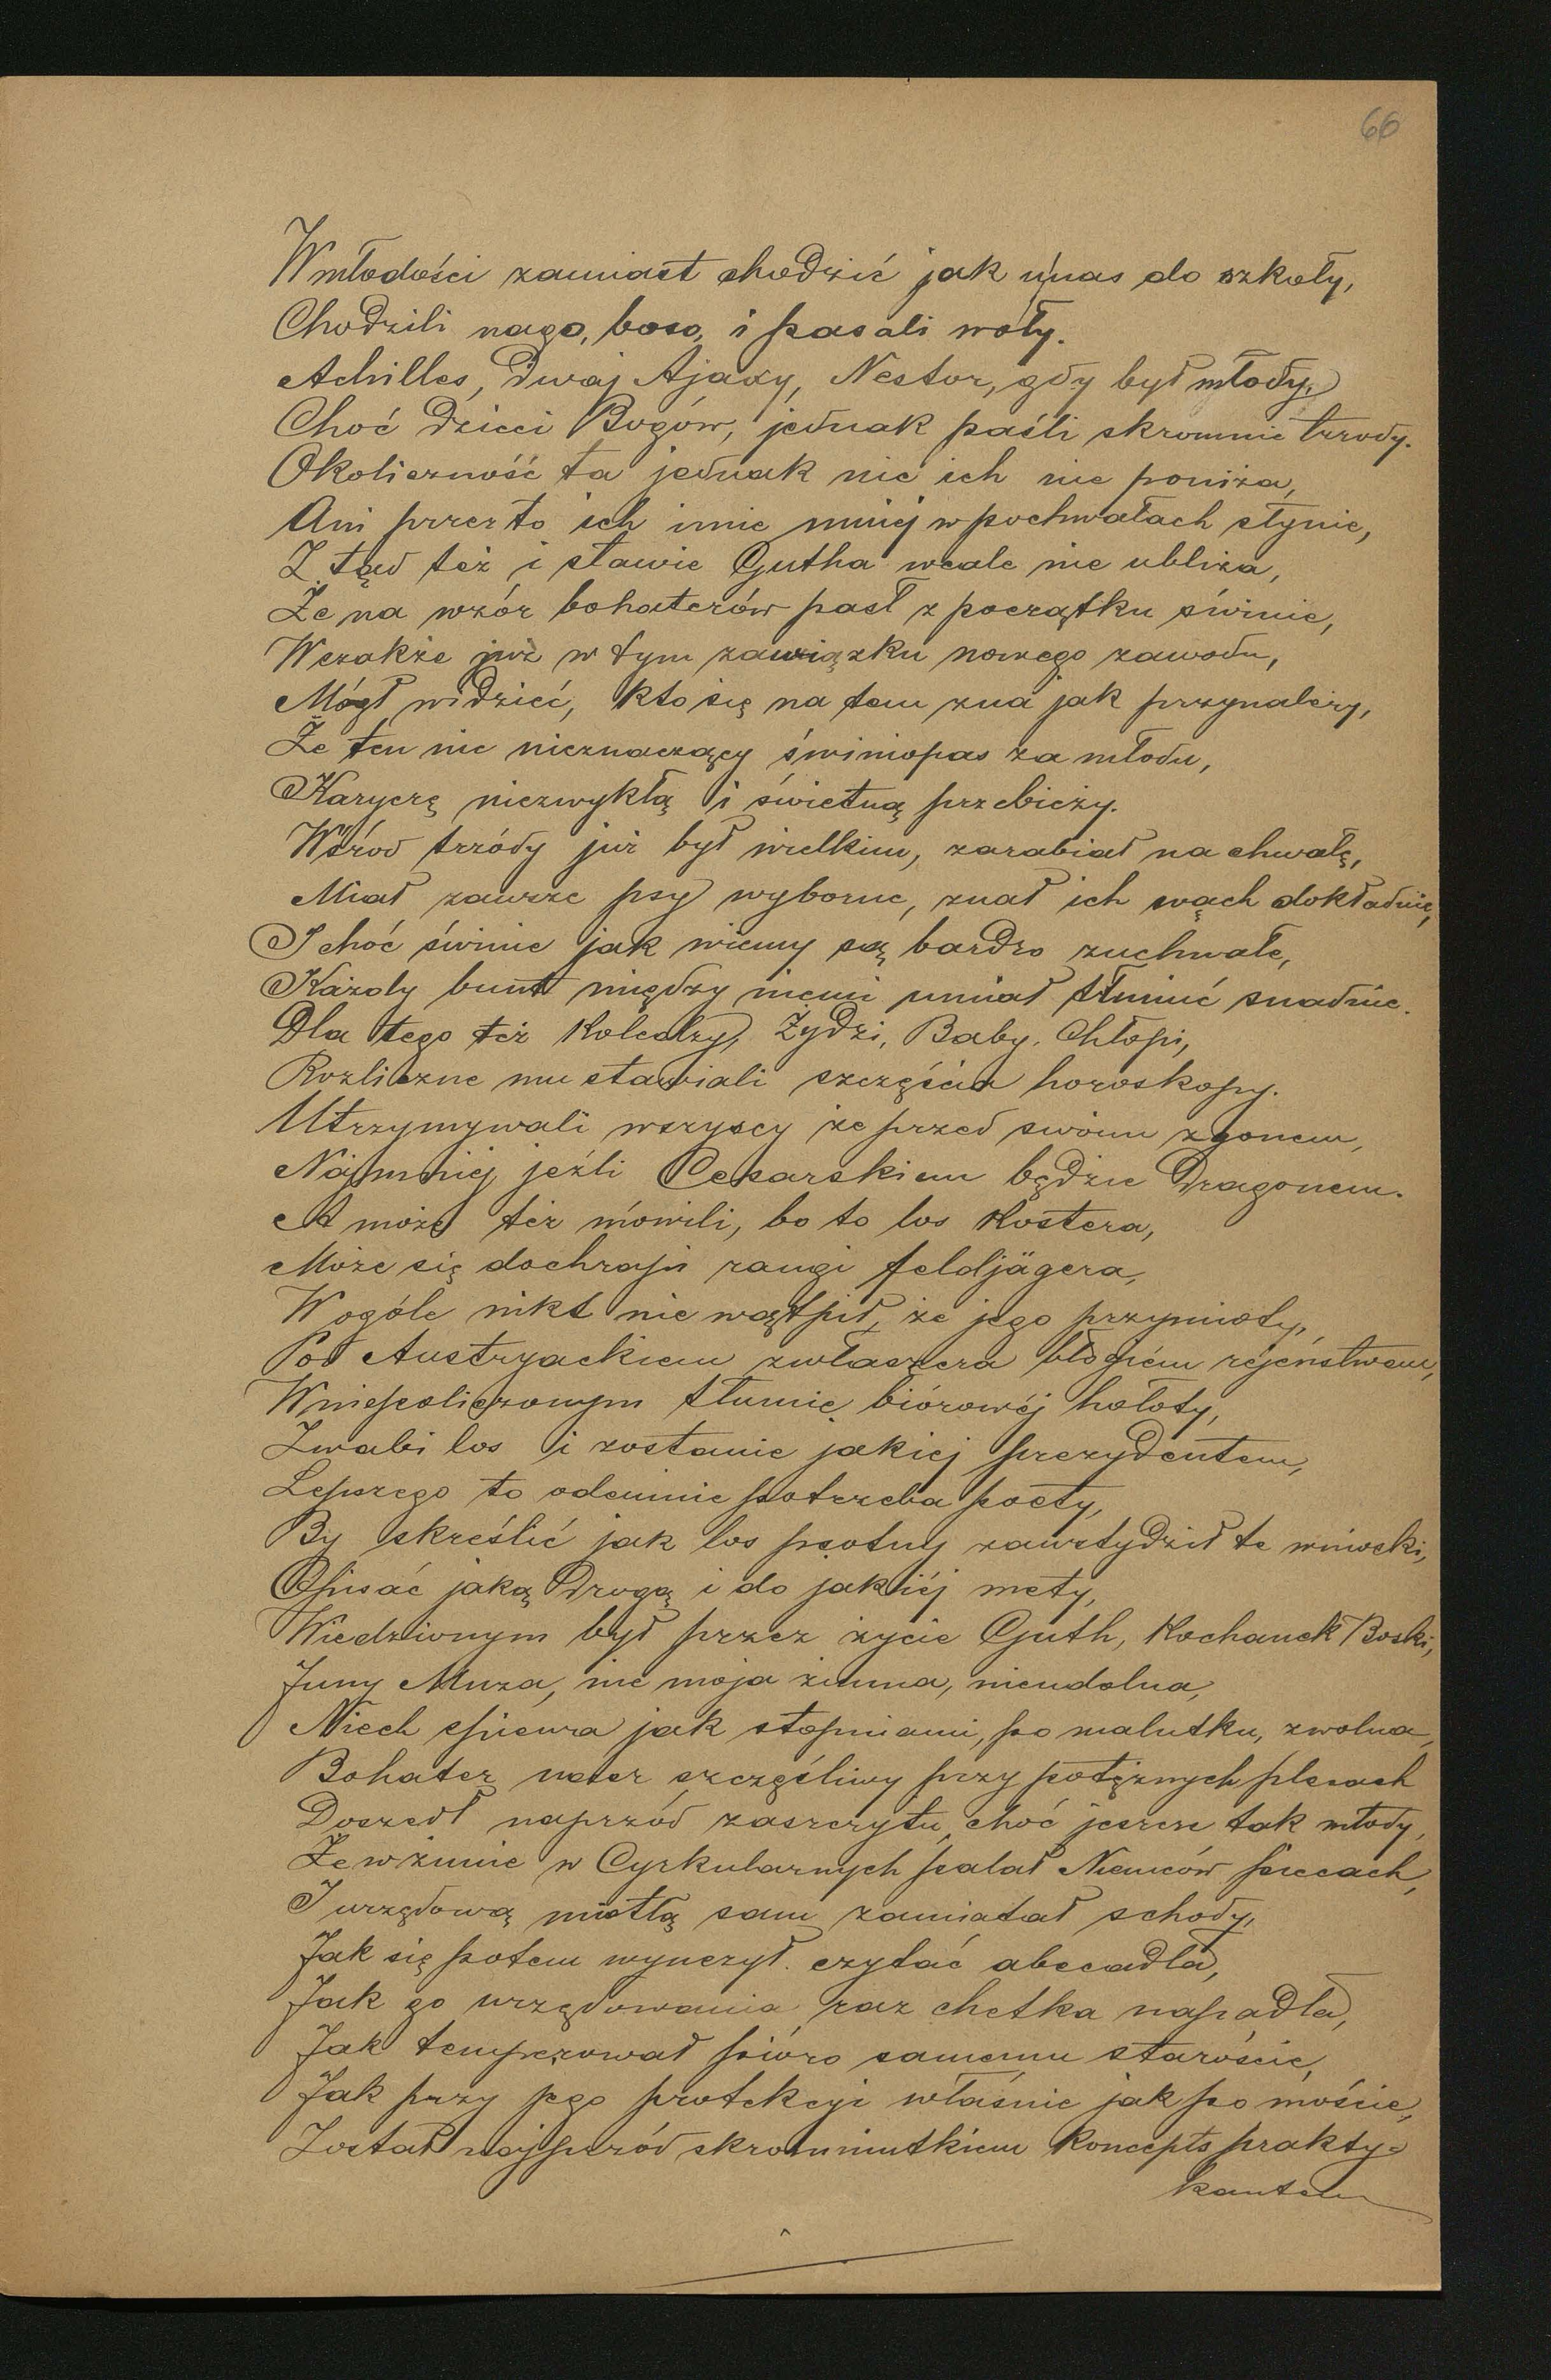 66
W młodości zamiast chodzić jak u nas do szkoły,
Chodzili nago, boso, i pasali woły.
Achilles, dwaj Ajaxy, Nestor, gdy był młody,
Choć dzieci Bogów, jednak paśli skromnie trzody.
Okoliczność ta jednak nic ich nie poniża,
Ani przez to ich imie mniéj w pochwałach słynie,
Z tąd też i sławie Gutha wcale nie ubliża,
Że na wzór bohaterów pasł z początku świnie,
Wszakże już w tym zawiązku nowego zawodu,
Mógł widzieć, kto się na tem zna jak przynależy,
Że ten nic nieznaczący świniopas za młodu,
Karyerę niezwykłą i świetną przebieży.
Wśród trzódy już był wielkim, zarabiał na chwałę,
Miał zawsze psy wyborne, znał ich węch dokładnie,
I choć świnie jak wiemy są bardzo zuchwałe,
Każdy bunt między niemi umiał tłumić snadnie.
Dla tego też Koledzy, Żydzi, Baby, Chłopi,
Rozliczne mu stawiali szczęścia horoskopy.
Utrzymywali wszyscy że przed swoim zgonem,
Najmniej jeźli Cesarskiem będzie Dragonem.
A może też mówili, bo to los Kostera,
Może się dochrapi rangi feldjägera,
W ogóle nikt nie wątpił, że jego przymioty,
Pod Austryackiem zwłaszcza błogiém rejeństwem,
W niepoliczonym tłumie biórowéj hołoty,
Zwabi los i zostanie jakiej prezydentem,
Lepszego to odemnie potrzeba poety,
By skreślić jak los psotny zawstydził te wnioski,
Opisać jaką drogą i do jakiéj mety,
Wiedzionym był przez życie Guth, Kochanek Boski,
Inny Muza, nie moja zimna, nieudolna,
Niech śpiewa jak stopniami, po malutku, zwolna,
Bohater nasz szczęśliwy przy potężnych plecach
Doszedł naprzód zaszczytu, choć jeszcze tak młody,
Że w zimie w Cyrkularnych palał Niemców piecach,
I urzędową miotłą sam zamiatał schody,
Jak się potem wyuczył czytać abecadła,
Jak go urzędowania raz chetka napadła,
Jak temperował pióro samemu staroście,
Jak przy jego protekcyi właśnie jak po moście,
Został najprzód skromniutkiem Koncepts prakty=
kantem